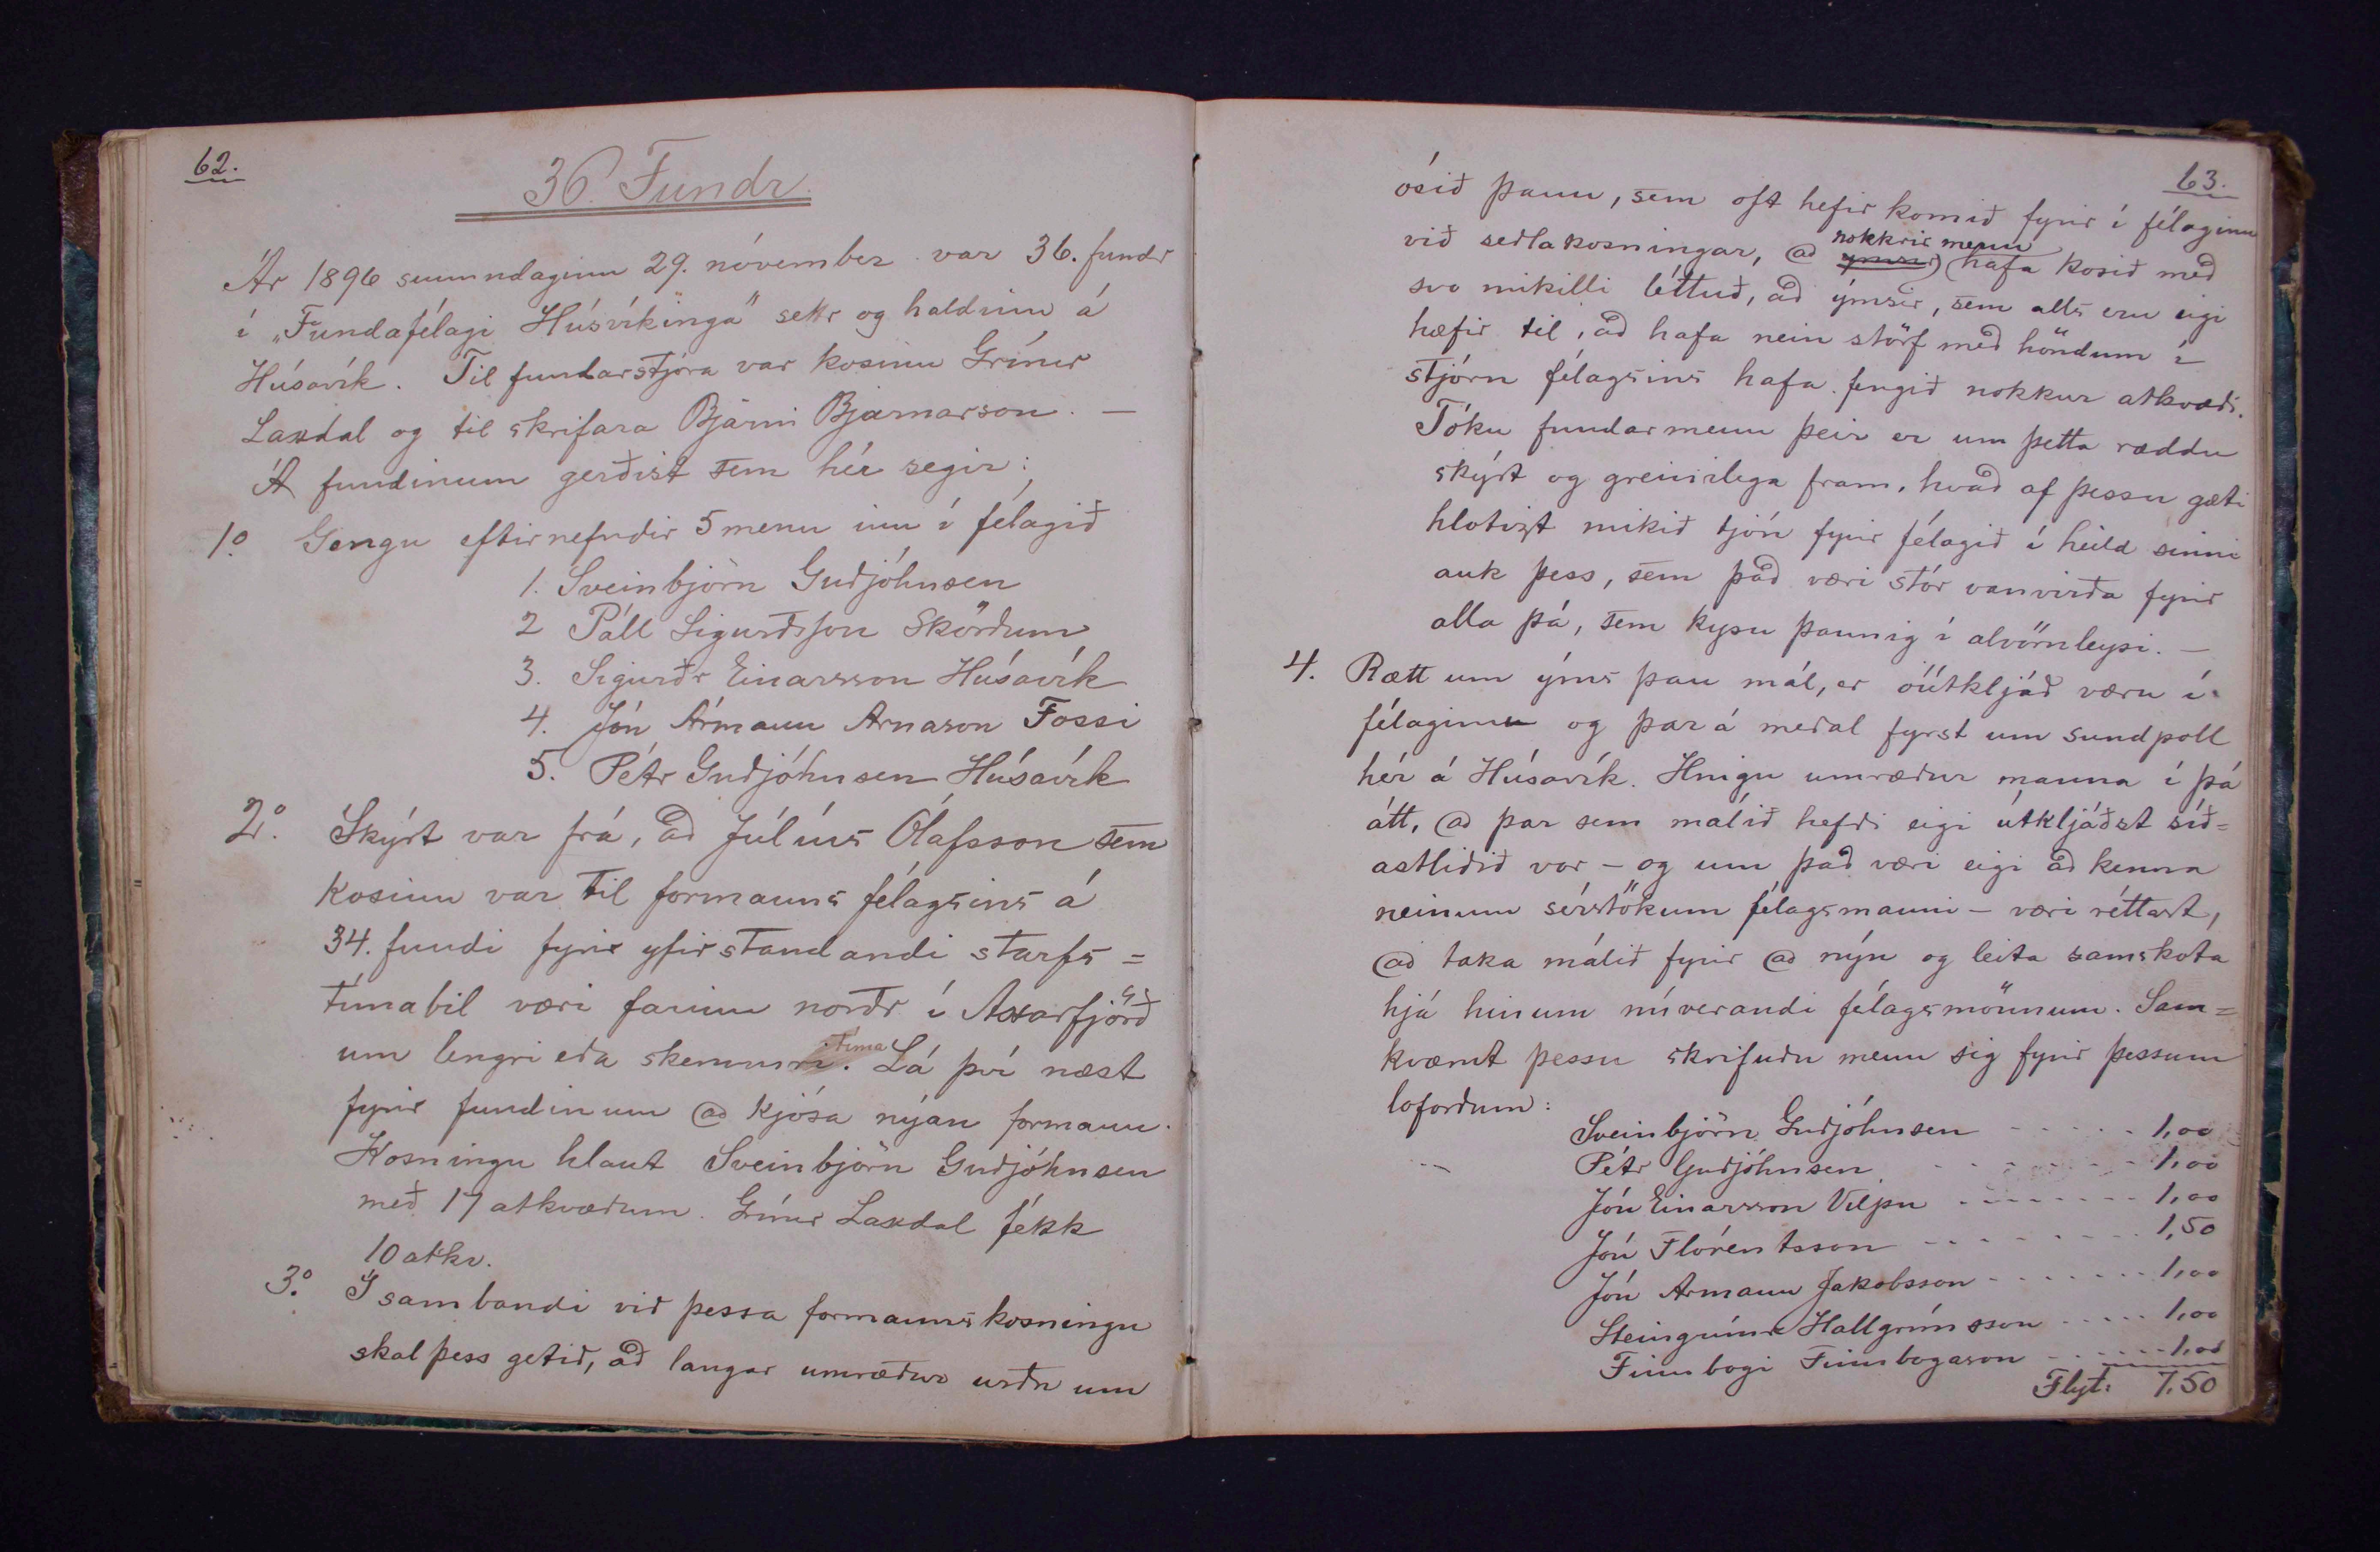 62.
36. Fundr.
Ár 1896 sunnudaginn 29. nóvember var 36. fundr
í „Fundafélagi Húsvíkinga" settr og haldinn á
Húsavík. Til fundarstjóra var kosinn Grímur
Laxdal og til skrifara Bjarni Bjarnarson. —
Á fundinum gerðist sem hér segir:
1.o Gengu eftirnefndir 5 menn inn í félagið
1. Sveinbjörn Guðjóhnsen
2 Páll Sigurðsson Skörðum
3. Sigurðr Einarsson Húsavík
4. Jón Ármann Árnason Fossi
5. Pétr Guðjóhnsen Húsavík
2.o Skýrt var frá, að Júlíus Ólafsson sem
kosinn var til formanns félagsins á
34. fundi fyrir yfirstandandi starfs=
tímabil væri farinn norðr í Axarfjörð
um lengri eða skemmri tíma. Lá því næst
fyrir fundinum að kjósa nýjan formann.
Kosningu hlaut Sveinbjörn Guðjóhnsen
með 17 atkvæðum. Grímr Laxdal fékk
10 atkv.
3.o Í sambandi við þessa formannskosningu
skal þess getið, að langar umræður urðu um
63.
ósið þann, sem oft hefir komið fyrir í félaginu
við seðlakosningar, að ýmsir nokkrir menn hafa kosið með
svo mikilli léttúð, að ýmsir, sem alls eru eigi
hæfir til, að hafa nein störf með höndum í
stjórn félagsins hafa fengið nokkur atkvæði.
Tóku fundarmenn þeir er um þetta ræddu
skýrt og greinilega fram, hvað af þessu gæti
hlotizt mikið tjón fyrir félagið í heild sinni
auk þess, sem það væri stór vanvirða fyrir
alla þá, sem kysu þannig í alvörnleysi. —
4. Rætt um ýms þau mál, er óútkljáð væru í
félaginu og þar á meðal fyrst um sundpoll
hér á Húsavík. Hnigu umræður manna í þá
átt, að þar sem málið hefði eigi útkljáðst síð=
astliðið vor – og um það væri eigi að kenna
neinum sérstökum félagsmanni – væri réttast,
að taka málið fyrir að nýu og leita samskota
hjá hinum núverandi félagsmönnum. Sam=
kvæmt þessu skrifuðu menn sig fyrir þessum
loforðum:
Sveinbjörn Guðjóhnsen - - - - - 1,00
Pétr Guðjóhnsen - - - - - - - 1,00
Jón Einarsson Vilpu - - - - - - - 1,00
Jón Flórentsson - - - - - - - - 1,50
Jón Ármann Jakobsson - - - - - - - 1,00
Steingrímr Hallgrímsson - - - - - 1,00
Finnbogi Finnbogason - - - - - - 1,00
Flyt: 7,50